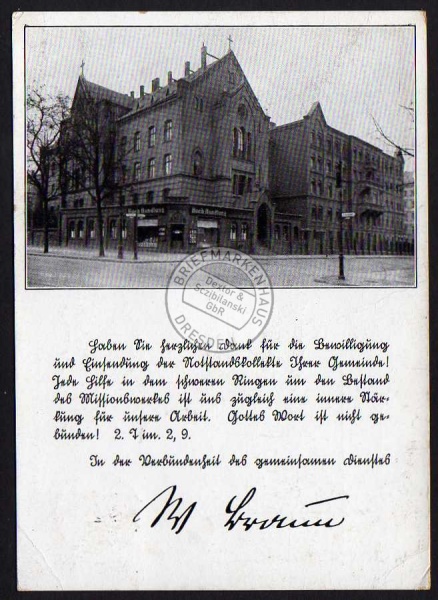 Buch Handlung
Buch Handlung
BRIEFMARKENHAUS
Dextor &
Sczibilanski
GbR
DRESDEN
Haben Sie herzlichen Dank für die Bewilligung
und Einsendung der Notstandskollekte Ihrer Gemeinde!
Jede Hilfe in dem schweren Ringen um den Bestand
des Missionswerkes ist uns zugleich eine innere Stär-
kung für unsere Arbeit. Gottes Wort ist nicht ge-
bunden! 2. Tim. 2, 9.
In der Verbundenheit des gemeinsamen Dienstes
W Braun